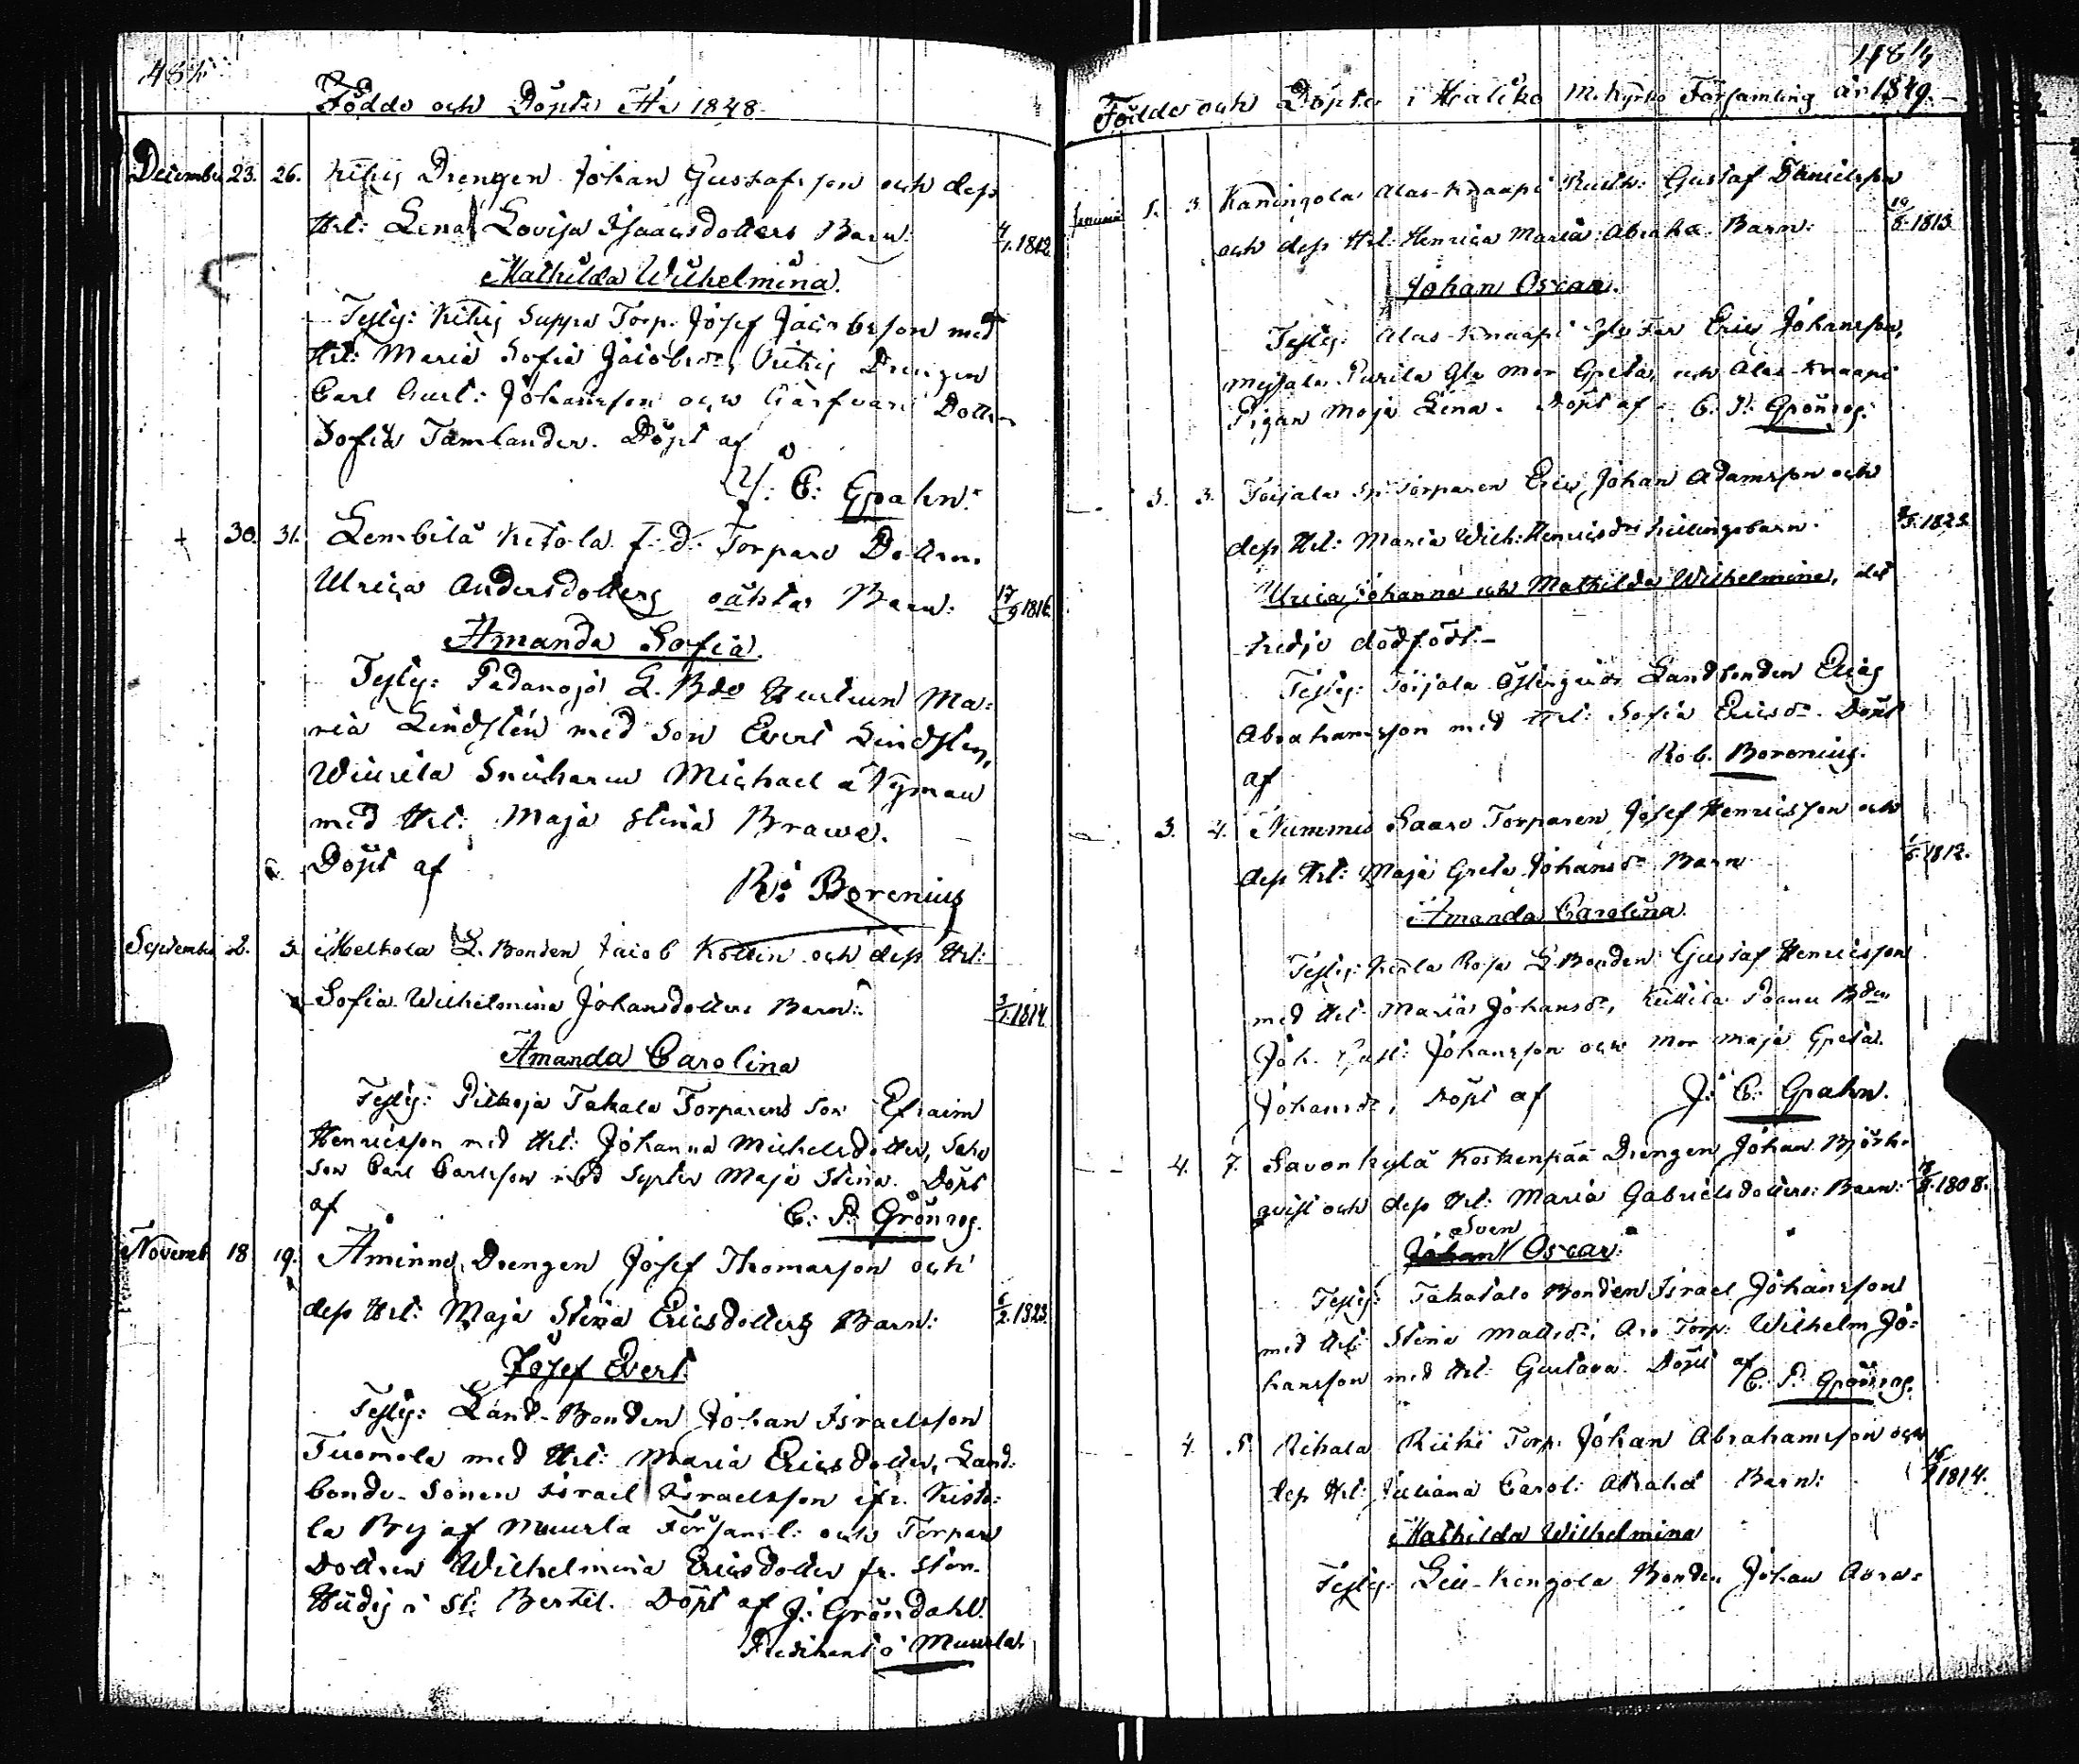 Födde och Döpte År 1848.
December 23. 26. Kihis Drengen Johan Gustafsson och dess
Hst: Lena Lovisa Isaacsdotters Barn: 4/1. 1812.
Mathilda Wilhelmina.
Testes: Kihis Suppa Torp. Josef Jacobsson med
Hst: Maria Sofia Jacobsdr, Drengen
Carl Gust: Johansson och Dottren
Sofia Tamlander. Döpt af
J: C: Grahn.
+ 30. 31. Lembilä Ketola f: d: Torpare Dottren
Ulrica Andersdotters oäkta Barn: 17/9 1816.
Amanda Sofia.
Testes: Padanoja L. Bde Hustrun Ma:
ria Lindsten med Son Evert Lindsten,
Wiurila Snickaren Michael Nyman
med Hst: Maja Stina Brawe.
Döpt af
R: Borenius
September 2. 3. Melkola L. Bonden Jacob Kollin och dess Hst:
Sofia Wilhelmina Johansdotters Barn: 3/1. 1814.
Amanda Carolina
Testes: Pitkoja Takala Torparens Son Efraim
Henricsson med Hst: Johanna Michelsdotter,
Son Carl Carlsson med Syster Maja Stina. Döpt
af C: P: Grönroos.
Novemb 18 19. Åminne Drengen Josef Thomasson och
dess Hst: Maja Stina Ericsdotters Barn: 6/2. 1823.
Josef Evert.
Testes: Land-Bonden Johan Israelsson
Tuomola med Hst: Maria Ericsdotter, Land:
bonde-Sonen Israel Israelsson ifr. Kisto:
la By af Muurla Församl: och Torpare
Dottren Wilhelmina Ericsdotter fr. Stor
i St: Bertil. Döpt af J: Gröndahl.
Predikant i Muurla.
Födde och Döpte i Haliko M. Kyrko Församling år 1849.
Januari 1. 3. Kaningola Alas-Knaapi Rusth: Gustaf Danielsson
och dess Hst: Henrica Maria Abrahs. Barn: 10/8. 1813
Johan Oscar.
Testes: Alas-Knaapi Gl. Far Eric Johansson,
Purila Gla Mor Greta, och Alas-Knaapi
Pigan Maja Lena. Döpt af C. P. Grönroos.
3. 3. Toijala Torparen Eric Johan Adamsson och
dess Hst: Maria Wilh: Henricsdrs trillingsbarn. 1823.
Ulrica Johanna och Mathilda Wilhelmina, det
tredje dödfödt.
Testes: Toijala Östergård Landbonden Elias
Abrahamsson med Hst: Sofia Ericsdr. Döpt
af Rob. Borenius.
3. 4. Nummis Saaro Torparen Josef Henricsson och
dess Hst: Maja Greta Johansdr Barn 1/6. 1812.
Amanda Carolina
Testes: L. Bonden Gustaf Henricsson
med Hst: Maria Johansdr, Bden
Joh. Gust: Johansson och Mor Maja Greta
Johansdr, Döpt af J: C: Grahn.
4. 7. Savonkylä Koskenpää Drengen Johan Björk-
qvist och dess Hst: Maria Gabrielsdotters Barn: 1808.
Sven
Johan Oscar:
Testes: Takatalo Bonden Israel Johansson
med Hst: Stina Mattsdr, Aro Torp: Wilhelm Jo:
hansson med Hst: Gustava. Döpt af C. P. Grönroos.
4. 5. Rikala Riihi Torp: Johan Abrahamsson och
dess Hst: Juliana Carol: Abrahs Barn: 1814.
Mathilda Wilhelmina
Testes: Bonden Johan Abra-